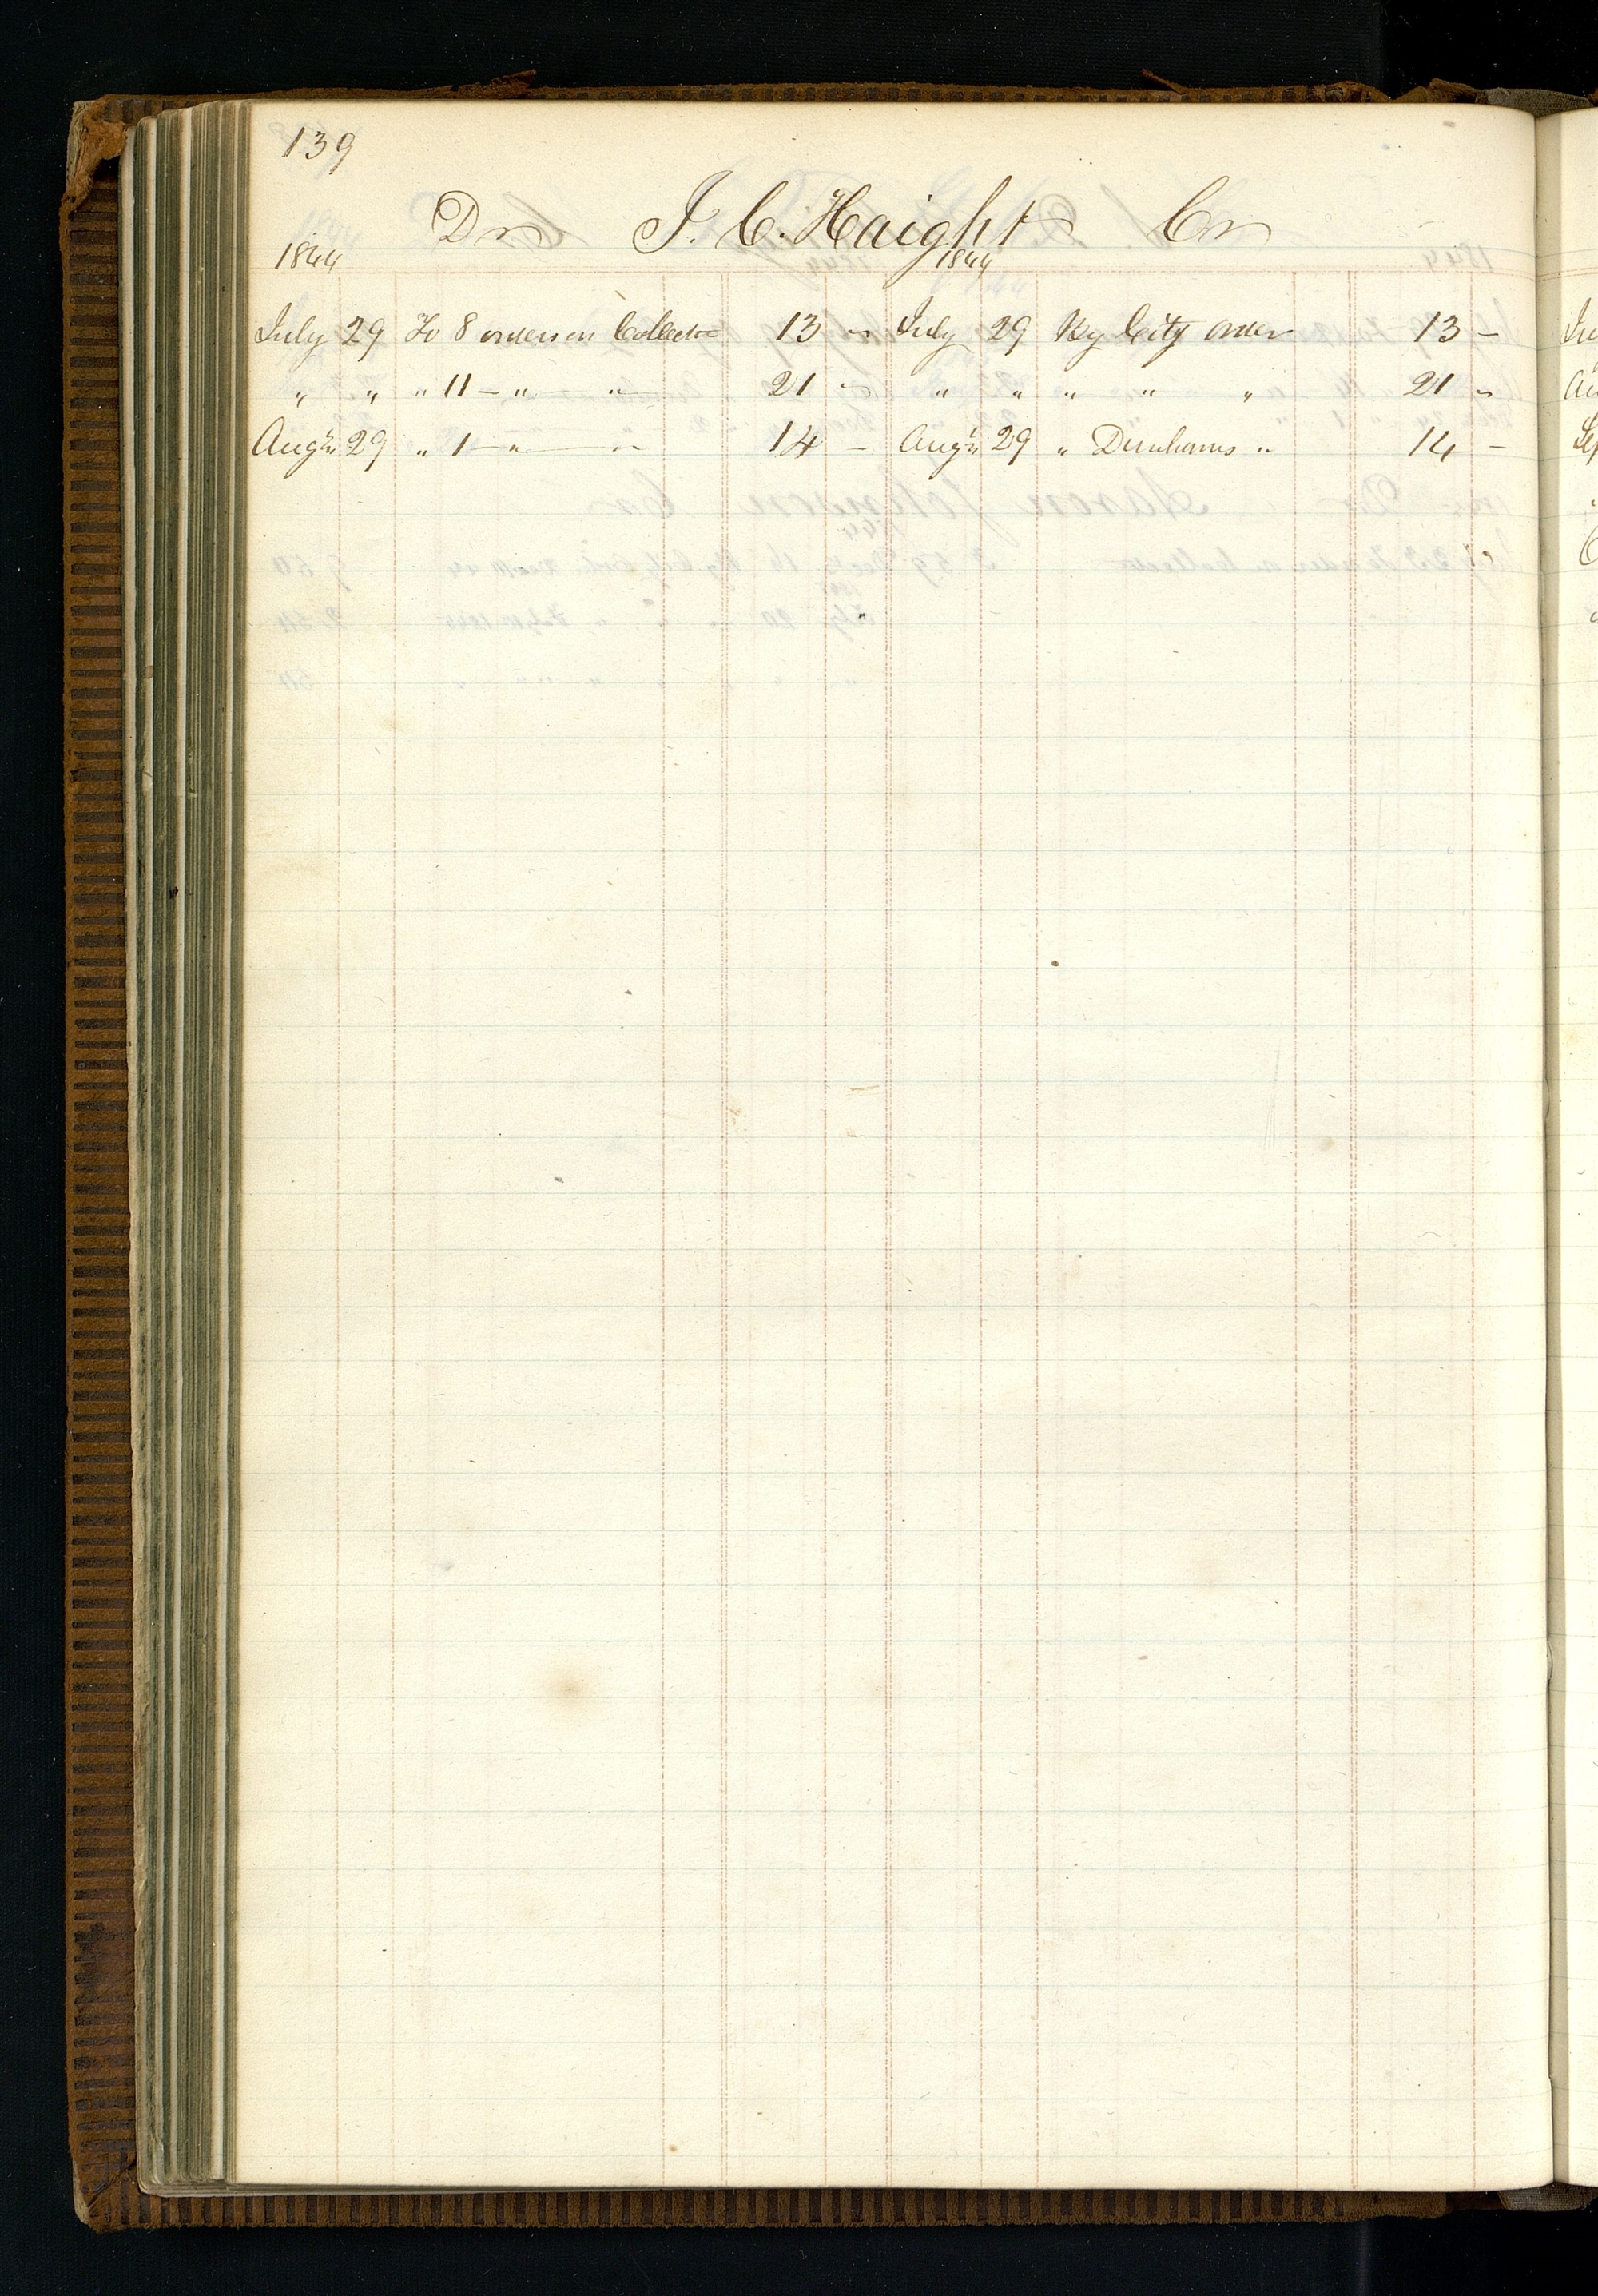 139
Dr I. C. Haight Cr
1844 1844
July 29 To 8 orders on Collector 13 - July 29 By City order 13 -
" " " 11 - " - " 21 - " " " " " 21 -
Augt 29 " 1 - " - " 14 - Augt 29 " Durnhams " 14 -